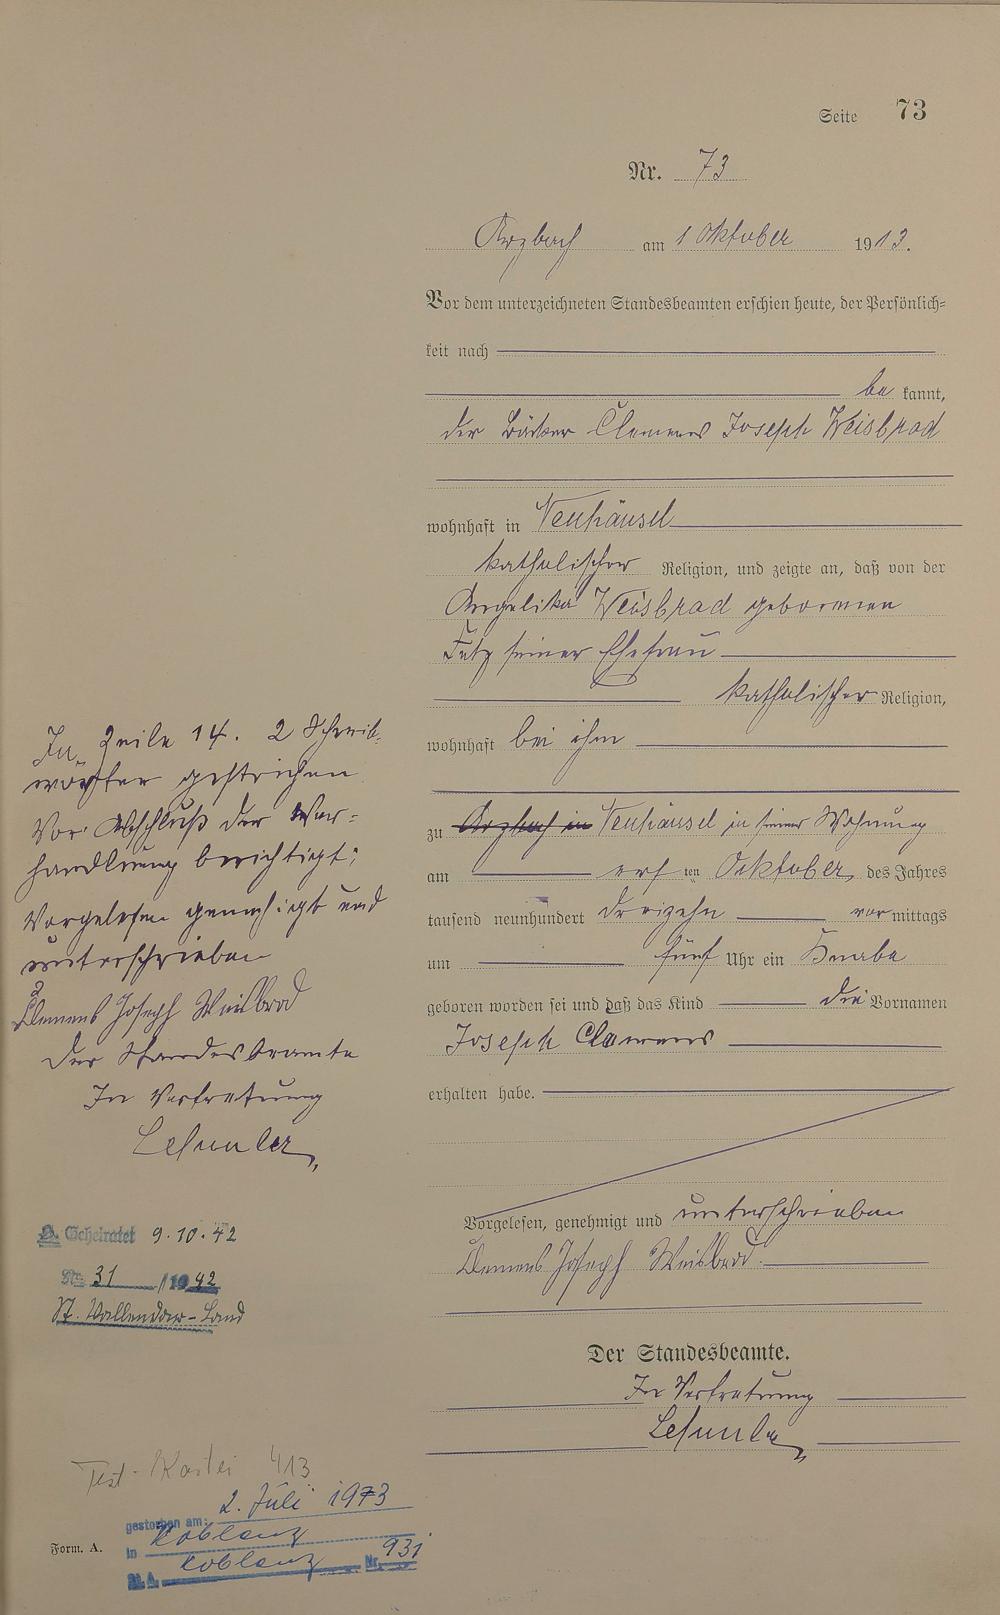 Seite 73
Nr. 73
Arzbach am 1 Oktober 1913.
Vor dem unterzeichneten Standesbeamten erschien heute, der Persönlich=
keit nach
be kannt,
der Bäcker Clemens Joseph Weisbrod
wohnhaft in Neuhäusel
katholischer Religion, und zeigte an, daß von der
Angelika Weisbrad geborenen
seiner Ehefrau
katholischer Religion,
wohnhaft bei ihm
zu Arzbach in Neuhäusel in seiner Wohnung
am ersten Oktober des Jahres
tausend neunhundert dreizehn vormittags
um fünf Uhr ein Knabe
geboren worden sei und daß das Kind die Vornamen
Joseph Clemens
erhalten habe.
Vorgelesen, genehmigt und unterschrieben
Clemens Joseph Weisbrod.
Der Standesbeamte.
In Vertretung
In Zeile 14. 2 Schreib=
wörter gestrichen
Vor Abschluß der Ver=
handlung berichtigt:
Vorgelesen genehmigt und
unterschrieben
Clemens Joseph Weisbrod
Der Standesbeamte
In Vertretung
Geheiratet 9.10.42
Nr. 31 /1942
St. Vallendar-Land
Test. Kartei 413
gestorben am: 2. Juli 1973
in Koblenz
St. A. Koblenz Nr. 931
Form. A.